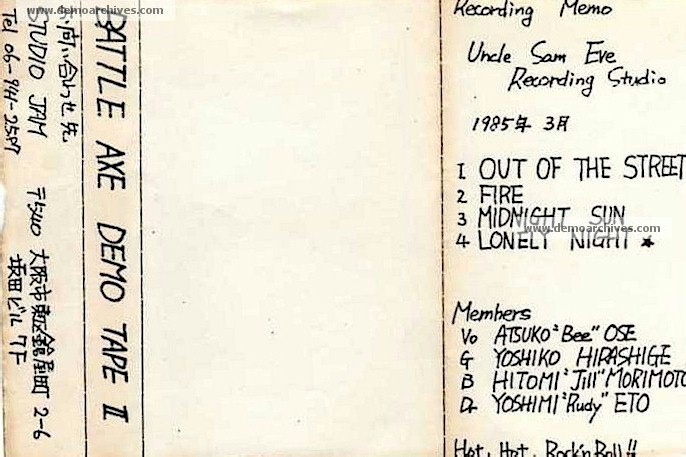 www.demoarchives.com
お問い合わせ先
STUDIO JAM 〒540 大阪市東区 2-6
坂田ビル 7F
Tel 06-941-
BATTLE AXE DEMO TAPE II
Recording Memo
Uncle Sam Eve
Recording Studio
1985年 3月
1 OUT OF THE STREET
2 FIRE
3 MIDNIGHT SUN
www.demoarchives.com
4 LONELY NIGHT ★
Members
Vo ATSUKO "Bee" OSE
G YOSHIKO HIRASHIGE
B HITOMI "Jill" MORIMOTO
Dr YOSHIMI "Rudy" ETO
Hot, Hot, Rock'n Roll!!